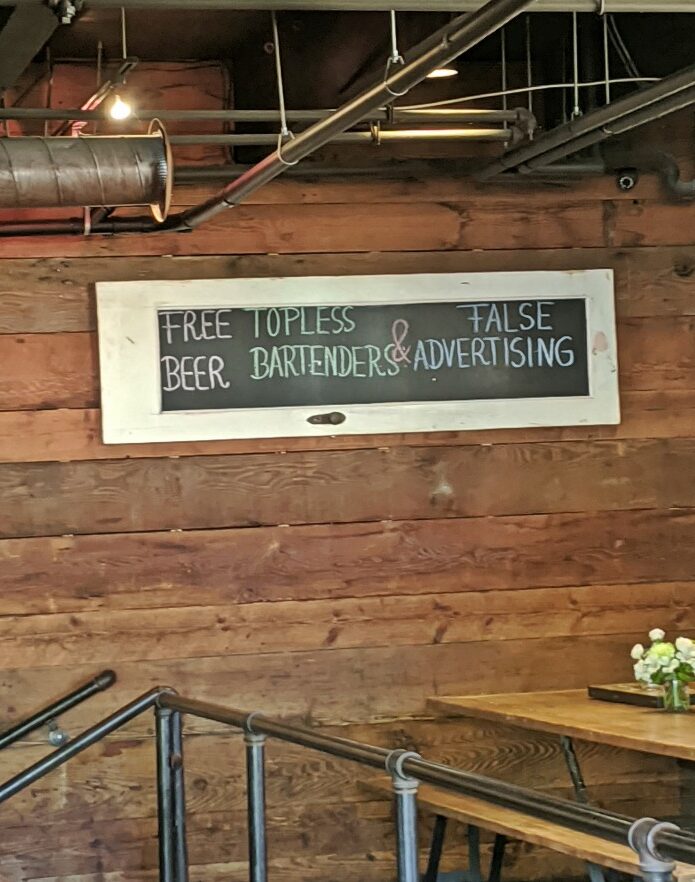 FREE TOPLESS FALSE
BEER BARTENDERS & ADVERTISING